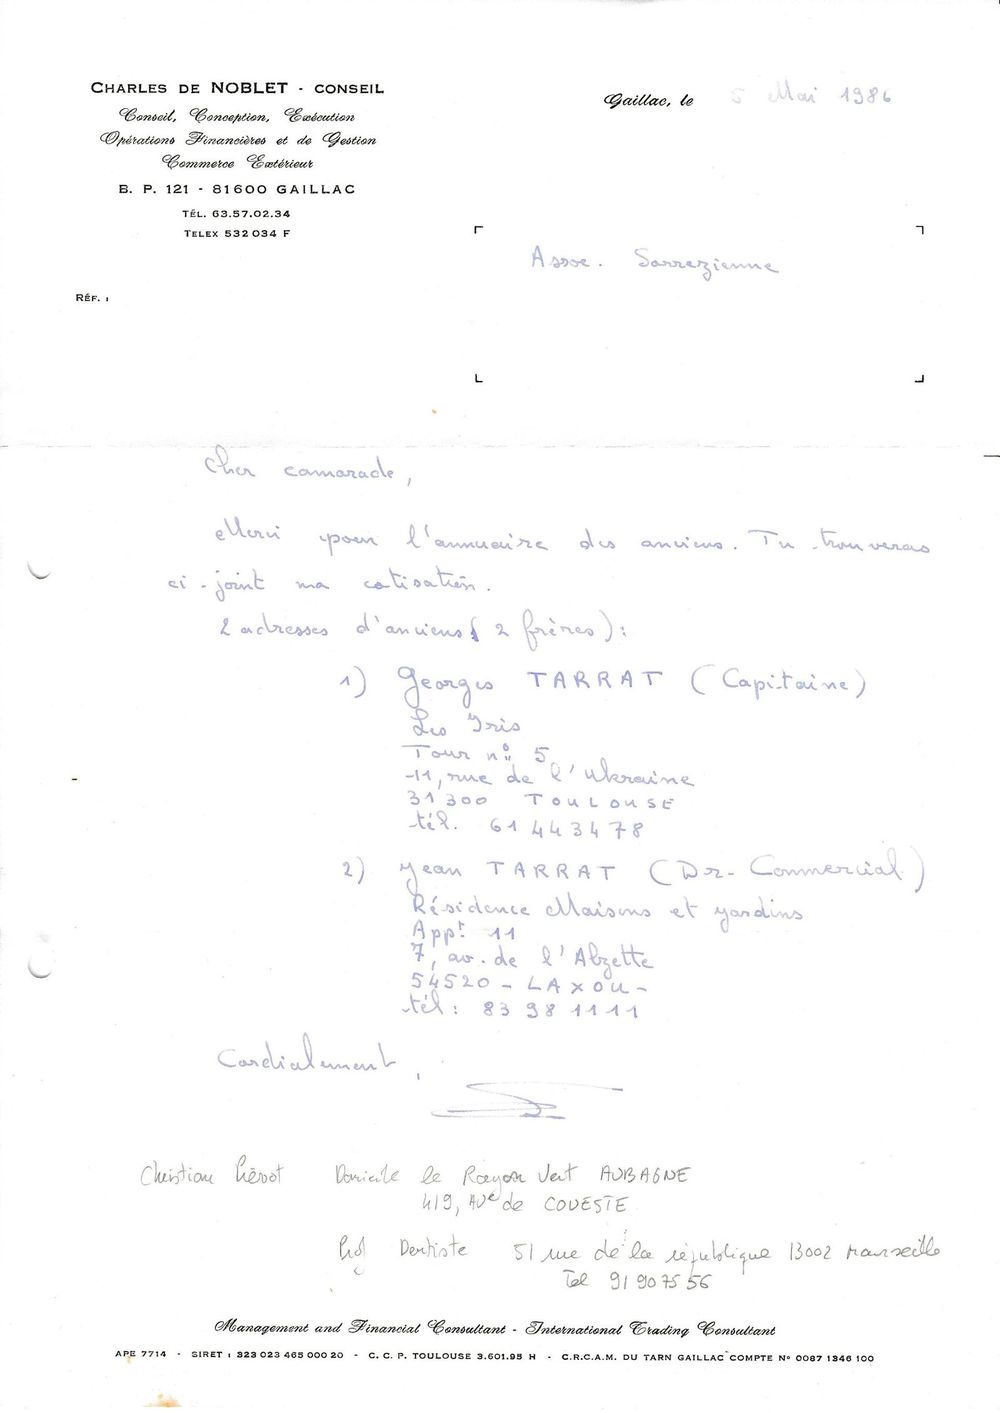 CHARLES DE NOBLET - CONSEIL
Conseil, Conception, Exécution
Opérations Financières et de Gestion
Commerce Extérieur
B. P. 121 - 81600 GAILLAC
TÉL. 63.57.02.34
TELEX 532 034 F
Gaillac, le 5 Mai 1986
Assoc. Sarrezienne
RÉF. :
Cher camarade,
Merci pour l'annuaire des anciens. Tu trouveras
ci-joint ma cotisation.
2 adresses d'anciens (2 frères):
1) Georges TARRAT (Capitaine)
Les Iris
Tour n° 5
11, rue de l'Ukraine
31300 TOULOUSE
tél. 61 44 34 78
2) Jean TARRAT (Dr. Commercial)
Résidence Maisons et Jardins
Appt 11
7, av. de l'Alzette
54520 - LAXOU -
tél: 83 98 11 11
Cordialement,
Christian Domicile le Rayon Vert AUBAGNE
419, Ave de COUESTE
Prof Dentiste 51 rue de la république 13002 Marseille
Tel 91 90 75 56
Management and Financial Consultant - International Trading Consultant
APE 7714 - SIRET : 323 023 465 000 20 - C. C. P. TOULOUSE 3.601.95 H - C.R.C.A.M. DU TARN GAILLAC COMPTE N° 0087 1346 100